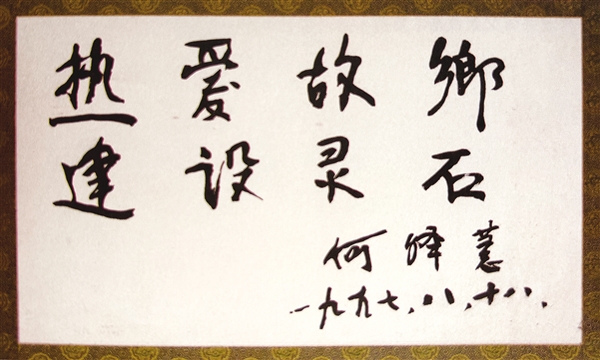 热爱故鄉
建设灵石
何泽慧
一九九七.八.十八.